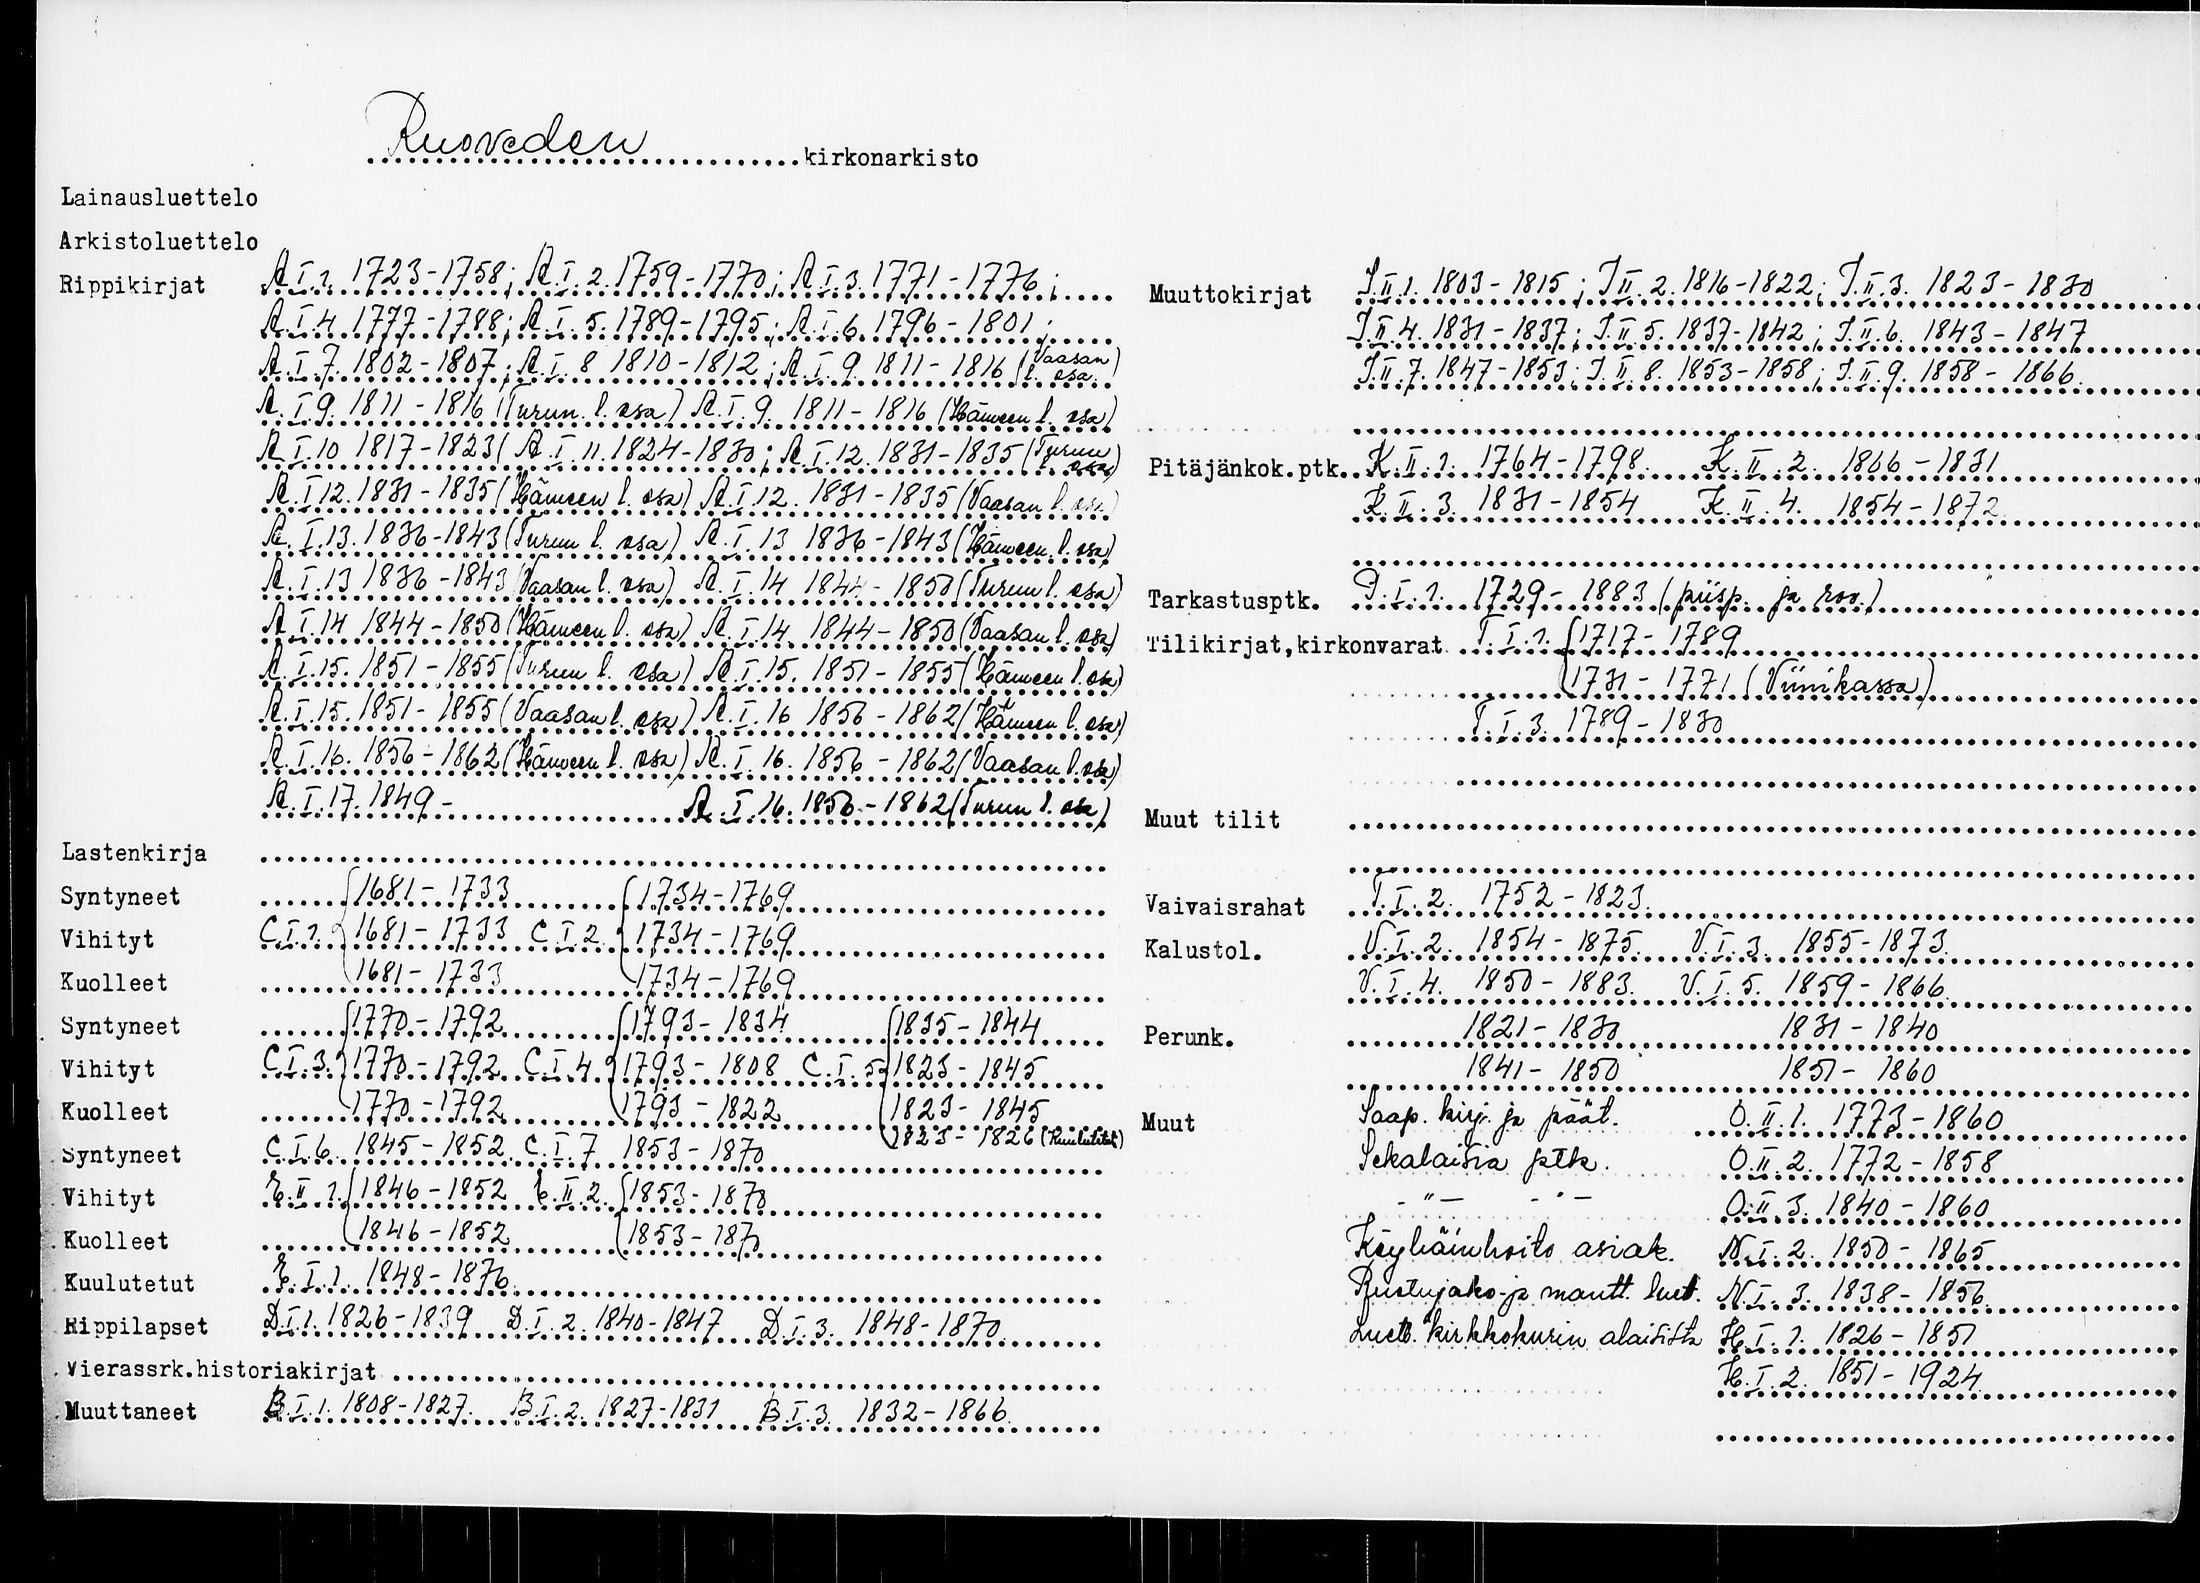 Ruoveden kirkonarkisto
Lainausluettelo
Arkistoluettelo
Rippikirjat A.I.1. 1723-1758; A.I.2. 1759-1770; A.I.3. 1771-1776;
A.I.4. 1777-1788; A.I.5. 1789-1795; A.I.6. 1796-1801;
A.I.7. 1802-1807; A.I.8 1810-1812; A.I.9. 1811-1816 (Vaasan l. osa)
A.I.9. 1811-1816 (Turun l. osa) A.I.9. 1811-1816 (Hämeen l. osa)
A.I.10 1817-1823( A.I.11. 1824-1830; A.I.12. 1831-1835 (Turun l. osa)
A.I.12. 1831-1835 (Hämeen l. osa) A.I.12. 1831-1835 (Vaasan l. osa)
A.I.13. 1836-1843 (Turun l. osa) A.I.13 1836-1843 (Hämeen l. osa)
A.I.13 1836-1843 (Vaasan l. osa) A.I.14 1844-1850 (Turun l. osa)
A.I.14 1844-1850 (Hämeen l. osa) A.I.14. 1844-1850 (Vaasan l. osa)
A.I.15. 1851-1855 (Turun l. osa) A.I.15. 1851-1855 (Hämeen l. osa)
A.I.15. 1851-1855 (Vaasan l. osa) A.I.16 1856-1862 (Hämeen l. osa)
A.I.16. 1856-1862 (Hämeen l. osa) A.I.16. 1856-1862 (Vaasan l. osa)
A.I.17. 1849- A.I.16. 1856-1862 (Turun l. osa)
Lastenkirja
Syntyneet 1681-1733 1734-1769
Vihityt C.I.1. 1681-1733 C.I.2. 1734-1769
Kuolleet 1681-1733 1734-1769
Syntyneet 1770-1792 1793-1834 1835-1844
Vihityt C.I.3. 1770-1792 C.I.4. 1793-1808 C.I.5. 1823-1845
Kuolleet 1770-1792 1793-1822 1823-1845
1823-1826 (Kuulutetut)
Syntyneet C.I.6. 1845-1852 C.I.7 1853-1870
Vihityt E.II.1. 1846-1852 E.II.2. 1853-1870
Kuolleet 1846-1852 1853-187
Kuulutetut E.I.1. 1848-1876
Rippilapset D.I.1. 1826-1839 D.I.2. 1840-1847 D.I.3. 1848-1870
Vierassrk.historiakirjat
Muuttaneet B.I.1. 1808-1827. B.I.2. 1827-1831 B.I.3 1832-1866
Muuttokirjat J.II.1. 1803-1815; J.II.2. 1816-1822; J.II.3. 1823-1830
J.II.4. 1831-1837; J.II.5. 1837-1842; J.II.6. 1843-1847
J.II.7. 1847-1853; J.II.8. 1853-1858; J.II.9. 1858-1866.
Pitäjänkok.ptk. K.II.1. 1764-1798. K.II.2. 1806-1831
K.II.3. 1831-1854 K.II.4. 1854-1872.
Tarkastusptk. D.I.1. 1729-1883 (piisp. ja rov.)
Tilikirjat,kirkonvarat T.I.1. 1717-1789
1731-1771 (Viinikassa)
T.I.3. 1789-1830
Muut tilit
Vaivaisrahat T.I.2. 1752-1823.
Kalustol. V.I.2. 1854-1875. V.I.3. 1855-1873.
V.I.4. 1850-1883. V.I.5. 1859-1866.
Perunk. 1821-1830 1831-1840
1841-1850 1851-1860
Muut Saap. kirj. ja päät. O.II.1. 1773-1860
Sekalaisia ptk. O.II.2. 1772-1858
-"- -"- O.II.3. 1840-1860
Köyhäinhoito asiak. N.I.2. 1850-1865
Ruotujako-ja mautt. luet. N.I.3. 1838-1856.
Luett. kirkkokurin alaisista H.I.1. 1826-1851
H.I.2. 1851-1924